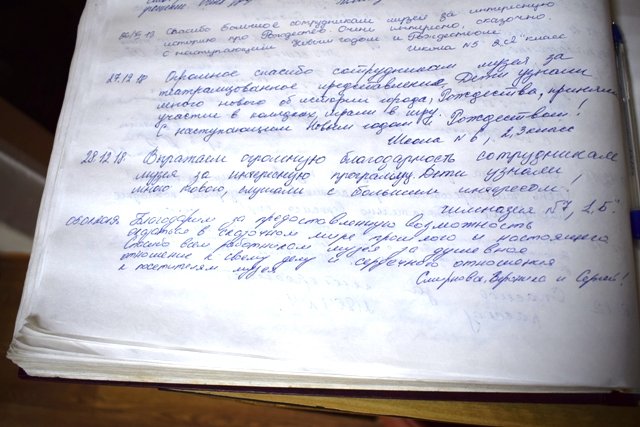 26/12 18 Спасибо большое сотрудникам музея за интересную
историю про Рождество. Очень интересно, сказочно.
С наступающим Новым годом и Рождеством
школа №5 2 "А" класс
27.12.18 Огромное спасибо сотрудникам музея за
театрализованное представление. Дети узнали
много нового об истории города, Рождества, приняли
участие в колядках, играли в игру.
С наступающим Новым годом и Рождеством!
Школа №6, 2,3 класс
28.12.18 Выражаем огромную благодарность сотрудникам
музея за интересную программу. Дети узнали
много нового, слушали с большим интересом!
гимназия №7, 2 Б"
Благодарим за предоставленную возможность
оказаться в сказочном мире прошлого и настоящего
Спасибо всем работникам музея за душевное
отношение к своему делу и сердечного отношения
к посетителям музея
Смирнова, Вероника и Сергей!